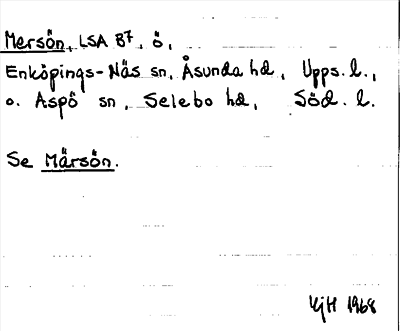 Mersön, LSA B7, ö,
Enköpings-Näs sn, Åsunda hd, Upps. l.,
o. Aspö sn, Selebo hd, Söd. l.
Se Märsön.
1968